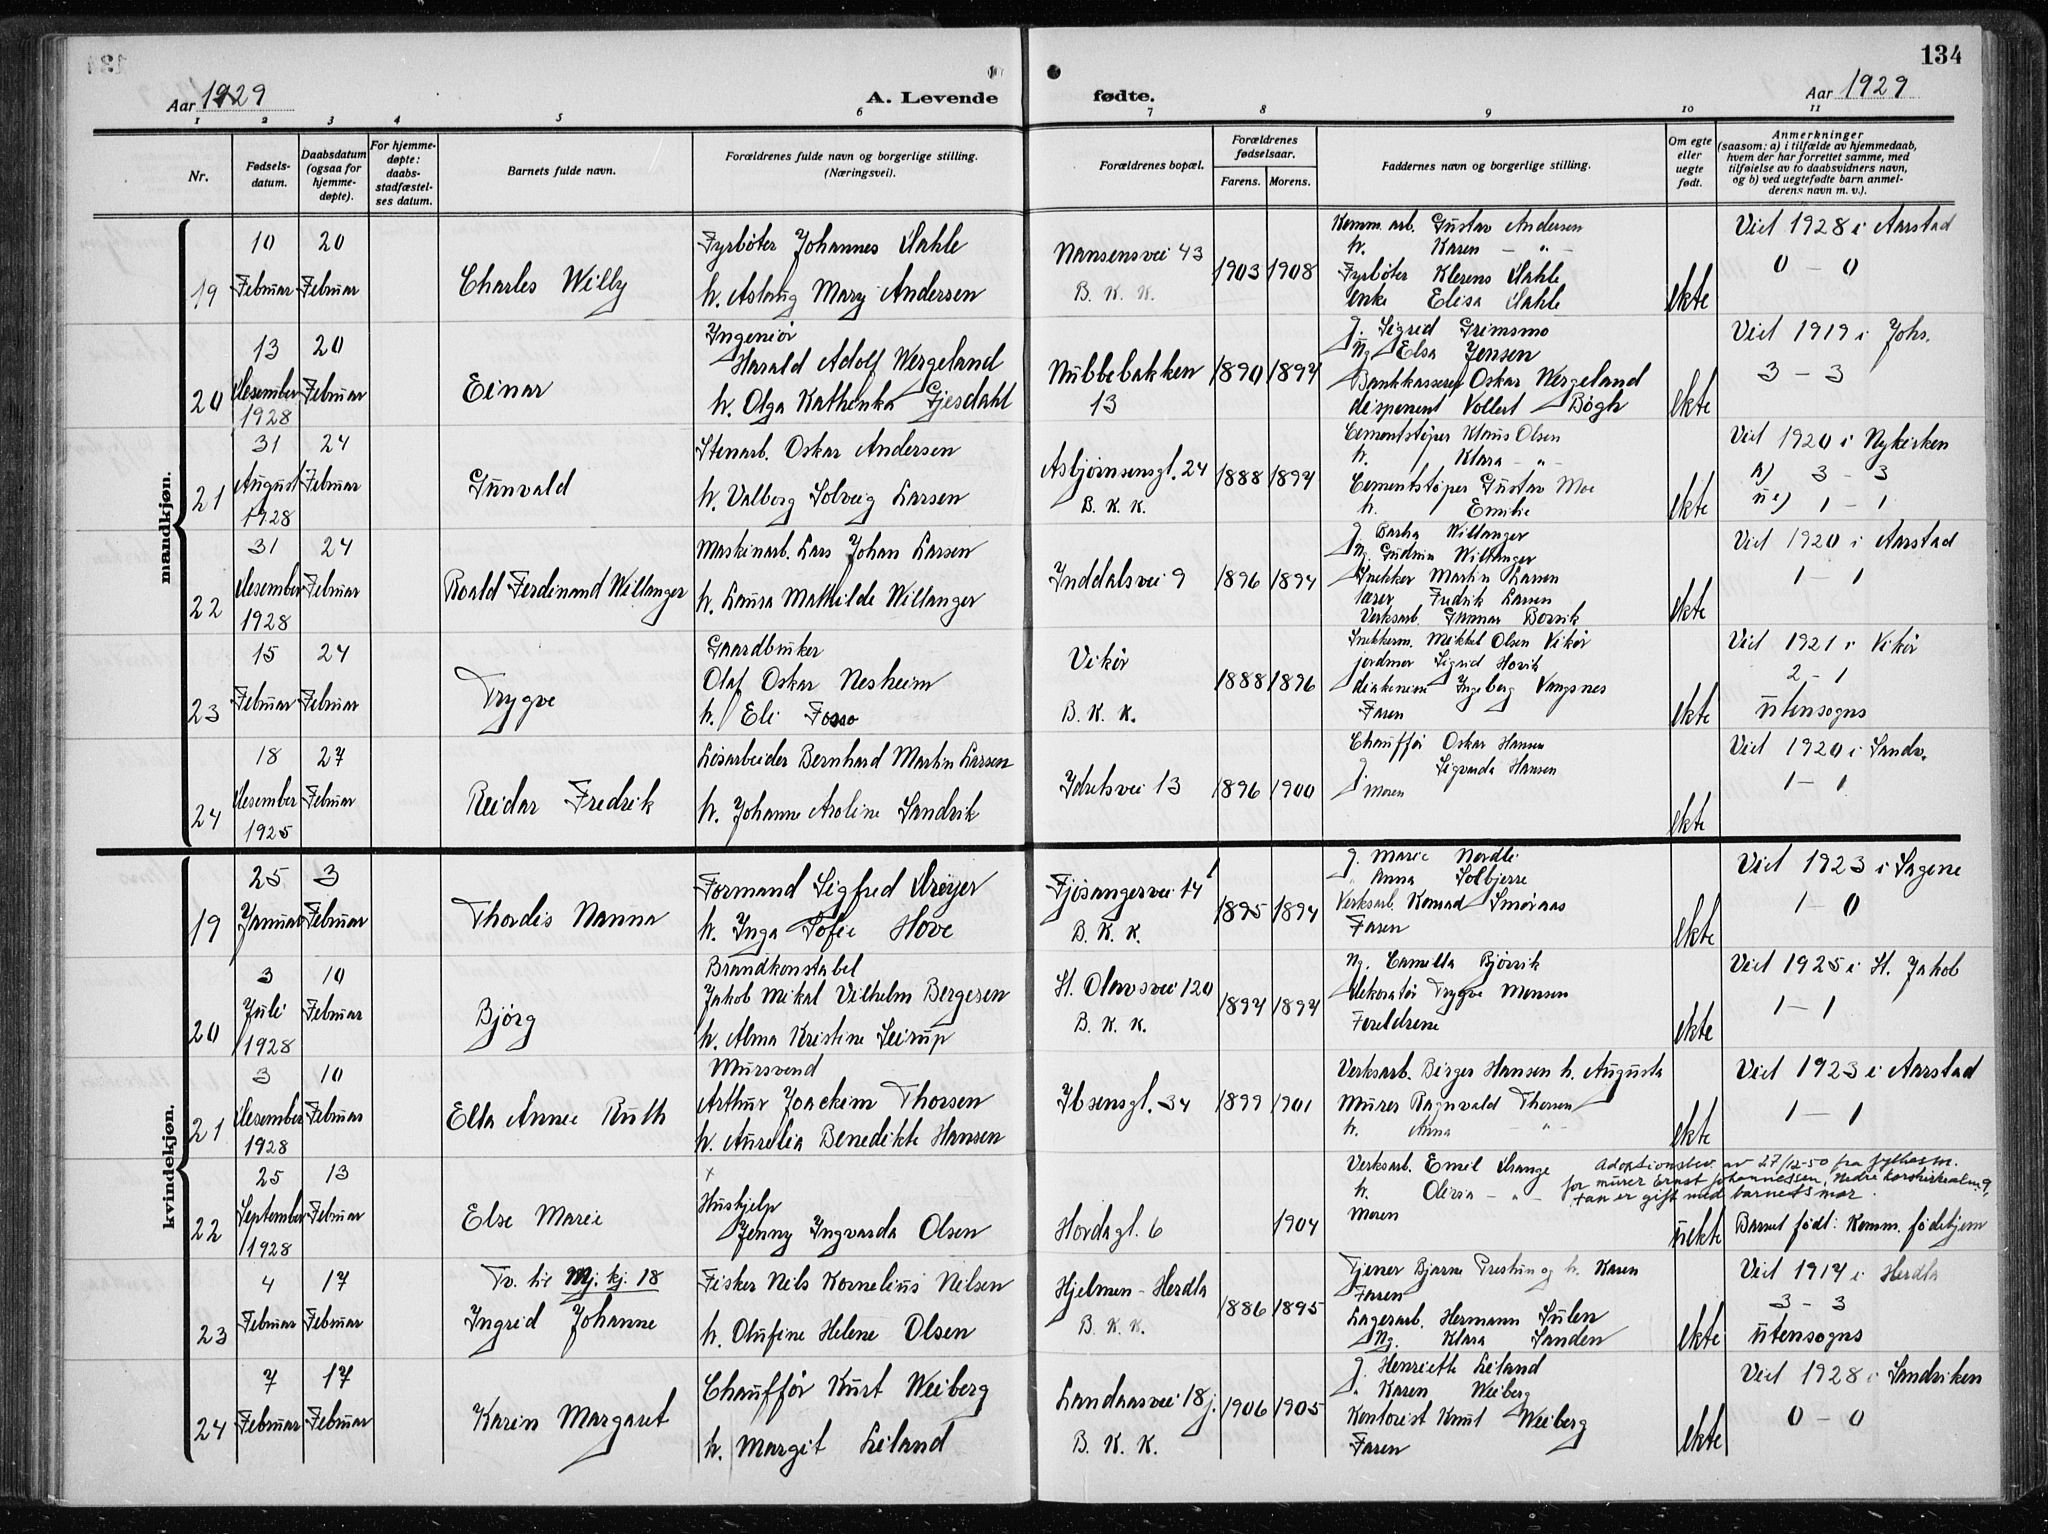 134
Aar 1929
A. Levende
fødte.
Aar 1929
1 2 3 4 5 6 7 8 9 10 11
Nr.
Fødsels-
datum.
Daabsdatum
(ogsaa for
hjemme-
døpte).
For hjemme-
døpte:
daabs-
stadfæstel-
ses datum.
Barnets fulde navn.
Forældrenes fulde navn og borgerlige stilling.
(Næringsvei).
Forældrenes bopæl.
Forældrenes
fødselsaar.
Farens. Morens.
Faddernes navn og borgerlige stilling.
Om egte
eller
uegte
født.
Anmerkninger
(saasom: a) i tilfælde av hjemmedaab,
hvem der har forrettet samme, med
tilføielse av to daabsvidners navn,
og b) ved uegtefødte barn anmel-
derens navn m. v.).
mandkjøn.
19
10
Februar
20
Februar
Charles Willy
Fyrbøter Johannes Dahle
h. Aslaug Mary Andersen
Nansensvei 43
B. K. K.
1903 1908
Komm. arb. Gustav Andersen
h. Karen – " –
Fyrbøter Klerens Dahle
Enke Elisa Dahle
ekte
Viet 1928 i Aarstad
0 – 0
20
13
Desember
1928
20
Februar
Einar
Ingeniør
Harald Adolf Wergeland
h. Olga Kathinka Gjesdahl
Nubbebakken
13
1890 1894
g. Sigrid Grimsmo
Ug. Elsa Jensen
Bankkasserer Oskar Wergeland
disponent Vollert Bøgh
ekte
Viet 1919 i Johs.
3 – 3
21
31
August
1928
24
Februar
Gunvald
Stenarb. Oskar Andersen
h. Valborg Solveig Larsen
Asbjørnsensgt. 24
B. K. K.
1888 1894
Cementstøper Klaus Olsen
h. Klara – " –
Cementstøper Gustav Moe
h. Emilie
ekte
Viet 1920 i Nykirken
a) 3 – 3
ue) 1 – 1
22
31
Desember
1928
24
Februar
Roald Ferdinand Wiltanger
Maskinarb. Lars Johan Larsen
h. Laura Mathilde Wiltanger
Inddalsvei 9
1896 1894
g. Basha Wiltanger
Ug. Gudrun Wiltanger
Snekker Martin Larsen
lærer Fredrik Larsen
Verksarb. Gunnar Borvik
ekte
Viet 1920 i Aarstad
1 – 1
23
15
Februar
24
Februar
Trygve
Gaardbruker
Olaf Oskar Nesheim
h. Eli Fosso
Vikør
B. K. K.
1888 1896
Snekkerm. Mikkel Olsen Vikør
jordmor Sigrid Hovik
diakonisse Ingeborg Vangsnes
Faren
ekte
Viet 1921 i Vikør
2 – 1
utensogns
24
18
Desember
1925
27
Februar
Reidar Fredrik
Løsarbeider Bernhard Martin Larsen
h. Johanne Aroline Sandvik
Idretsvei 13
1896 1900
Chauffør Oskar Hansen
g. Sigvarda Hansen
Moren
ekte
Viet 1920 i Sandv.
1 – 1
kvindekjøn.
19
25
Januar
3
Februar
Thordis Nanna
Formand Sigfred Drøyer
h. Inga Sofie Hove
Fjøsangervei 14
B. K. K.
1895 1894
g. Marie Nordli
" Anna Solbjerre
Verksarb. Konrad Smøraas
Faren
ekte
Viet 1923 i Sagene
1 – 0
20
3
Juli
1928
10
Februar
Bjørg
Brandkonstabel
Jakob Mikal Vilhelm Bergesen
h. Alma Kristine Seirup
St. Olavsvei 120
B. K. K.
1894 1894
Ug. Camilla Bjørvik
Dekoratør Trygve Monsen
Foreldrene
ekte
Viet 1925 i St. Jakob
1 – 1
21
3
Desember
1928
10
Februar
Elta Annie Ruth
Mursvend
Arthur Joackim Thorsen
h. Aurelia Benedikte Hansen
Ibsensgt. 34
1899 1901
Verksarb. Birger Hansen h. Augusta
Murer Ragnvald Thorsen
h. Anna – " –
ekte
Viet 1923 i Aarstad
1 – 1
22
25
September
1928
13
Februar
Else Marie
x
Hushjelp
Jenny Ingvarda Olsen
Hordagt. 6
1904
Verksarb. Emil Drange
h. Olivia – " –
Moren
uekte
Adoptionsbev. av 27/12-50 fra fylkesm.
for murer Ernst Johannessen, Nedre Korskirkealm. 9,
Han er gift med barnets mor.
Barnet født: Komm. fødehjem
23
4
Februar
17
Februar
Tv. til Mj. kj. 18
Ingrid Johanne
Fisker Nils Kornelius Nilsen
h. Olufine Helene Olsen
Hjelmen – Herdla
B. K. K.
1886 1895
Tjener Bjarne Prestun og h. Karen
Faren
Lagerarb. Hermann Sulen
Ug. Klara Sanden
ekte
Viet 1914 i Herdla
3 – 3
utensogns
24
7
Februar
17
Februar
Karin Margaret
Chauffør Kurt Weiberg
h. Margit Leiland
Landaasvei 18 j.
B. K. K.
1906 1905
g. Henriette Leiland
" Karen Weiberg
Kontorist Knut Weiberg
Faren
ekte
Viet 1928 i Sandviken
0 – 0